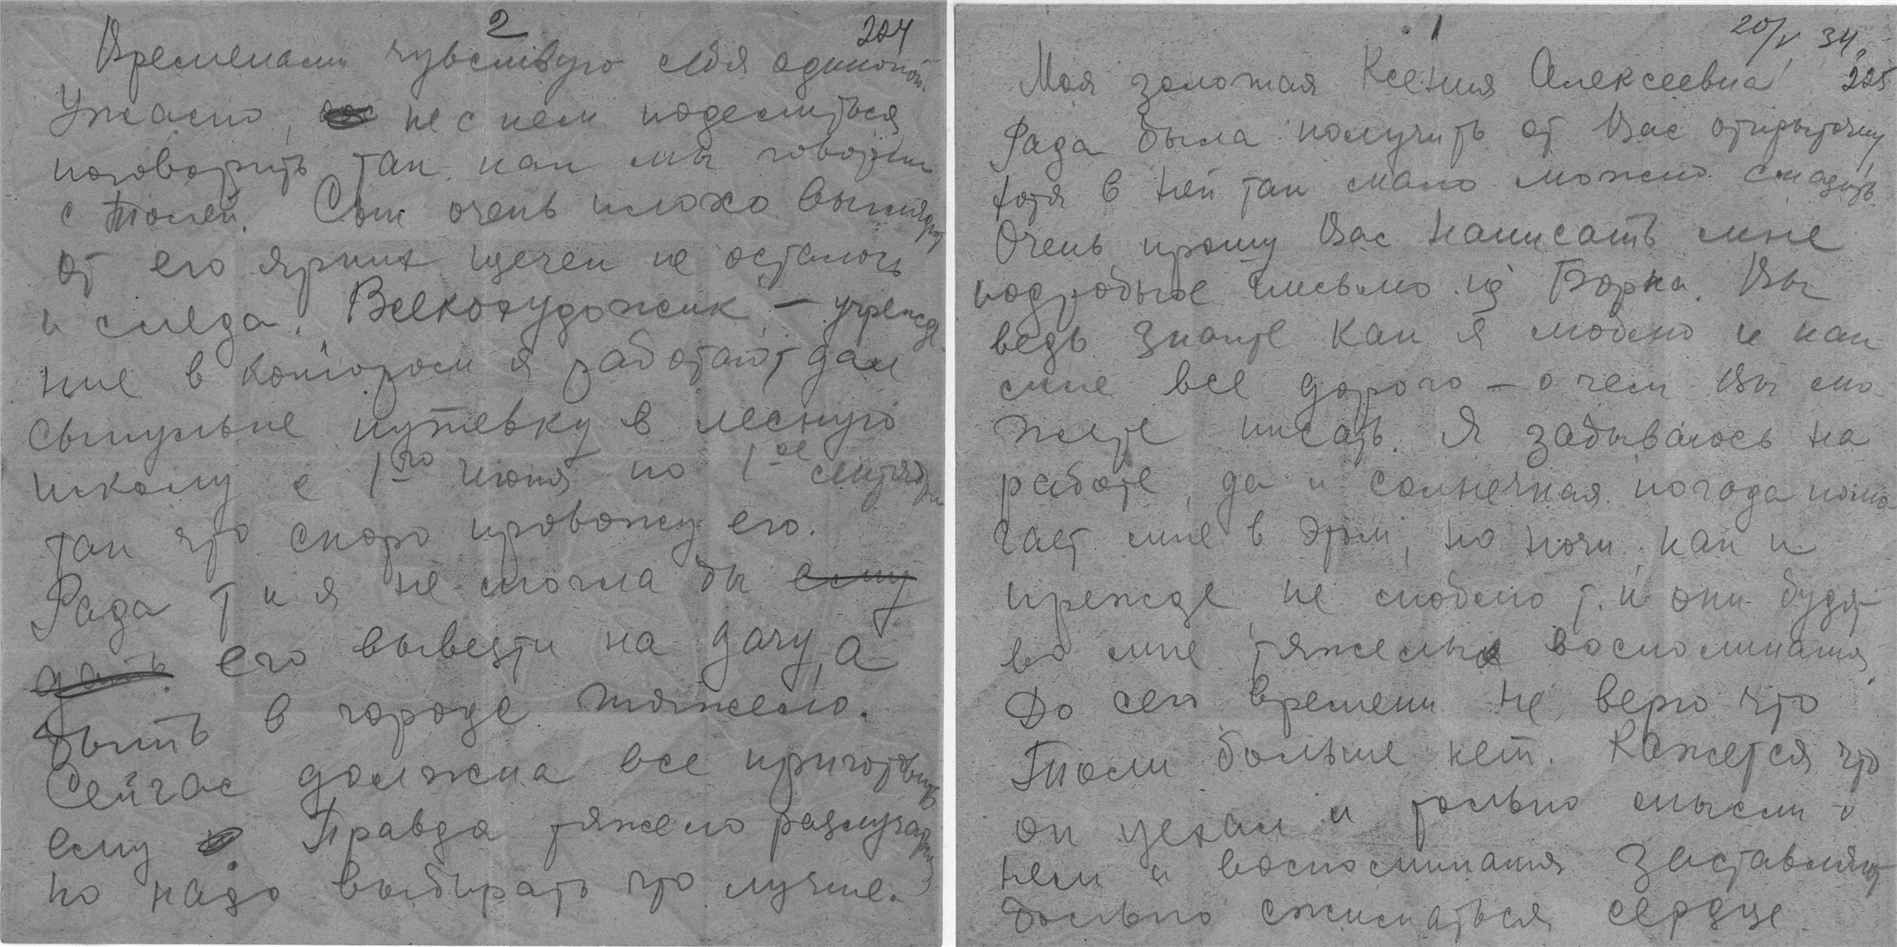 1
20/V 34.
225
Моя золотая Ксения Алексеевна!
Рада была получить от Вас открыточку
хотя в ней так мало можно сказать.
Очень прошу Вас написать мне
подробное письмо из Борка. Вы
ведь знаете как я люблю и как
мне все дорого – о чем Вы мо
жете писать. Я забываюсь на
работе, да и солнечная погода помо
гает мне в этом, но ночи как и
прежде не люблю т.к они будят
во мне тяжелые воспоминания.
До сего времени не верю что
Толи больше нет. Кажется что
он уехал и только мысли о
нем и воспоминания заставляют
больно сжиматься сердце.
2
224
Временами чувствую себя одинокой.
Ужасно, не с кем поделиться
поговорить так как мы говорили
с Толей. Сын очень плохо выглядит
от его ярких щечек не осталось
и следа. Всекохудожник – учрежде
ние в котором я работаю, дал
сынульке путевку в лесную
школу с 1го июня по 1ое сентября
так что скоро провожу его.
Рада т к я не могла бы ему
дать его вывезти на дачу, а
быть в городе тяжело.
Сейчас должна все приготовить
ему. Правда тяжело разлучаться,
но надо выбирать что лучше.